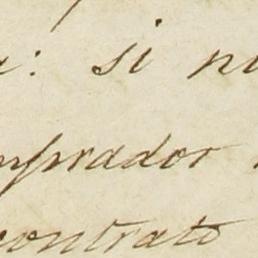 : si
comprador
contrato